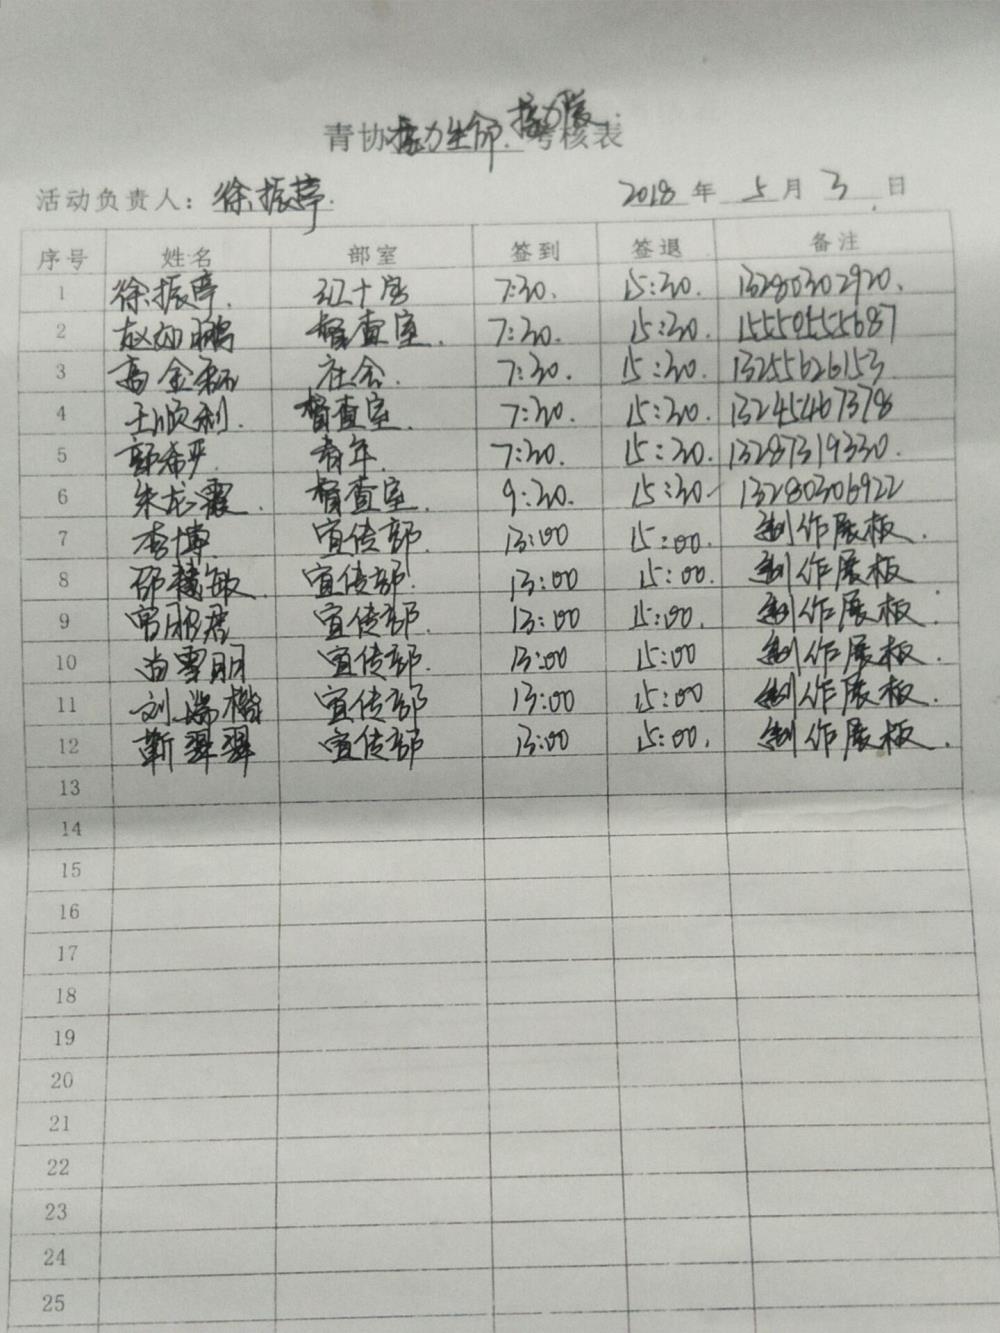 青协接力生命.接力爱.考核表
活动负责人：徐振莩. 2018 年 5 月 3 日
序号 姓名 部室 签到 签退 备注
1 徐振莩. 红十字 7:30. 15:30. 13280302920.
2 赵 鹏 督查室. 7:30. 15:30. 15550555687
3 高金 社会. 7:30. 15:30. 13255626153
4 王顺利. 督查室. 7:30. 15:30. 13245467378
5 郭希严. 青年. 7:30. 15:30. 13287319330.
6 朱龙霞. 督查室. 9:30. 15:30 13280306922
7 李博. 宣传部. 13:00 15:00. 制作展板.
8 邵 敏 宣传部. 13:00 15:00. 制作展板
9 宣传部. 13:00 15:00. 制作展板.
10 尚雪朋 宣传部. 13:00 15:00 制作展板.
11 刘瑞楷 宣传部 13:00 15:00 制作展板.
12 靳翠翠 宣传部 13:00 15:00. 制作展板.
13
14
15
16
17
18
19
20
21
22
23
24
25